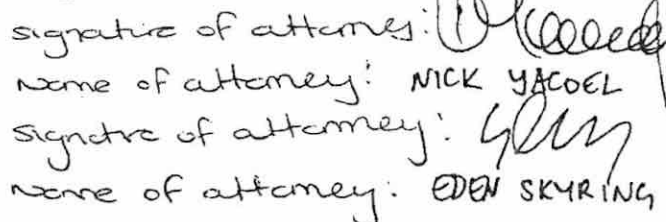 signature of attorney:
name of attorney: NICK YACOEL
signature of attorney:
name of attorney: EDEN SKYRING